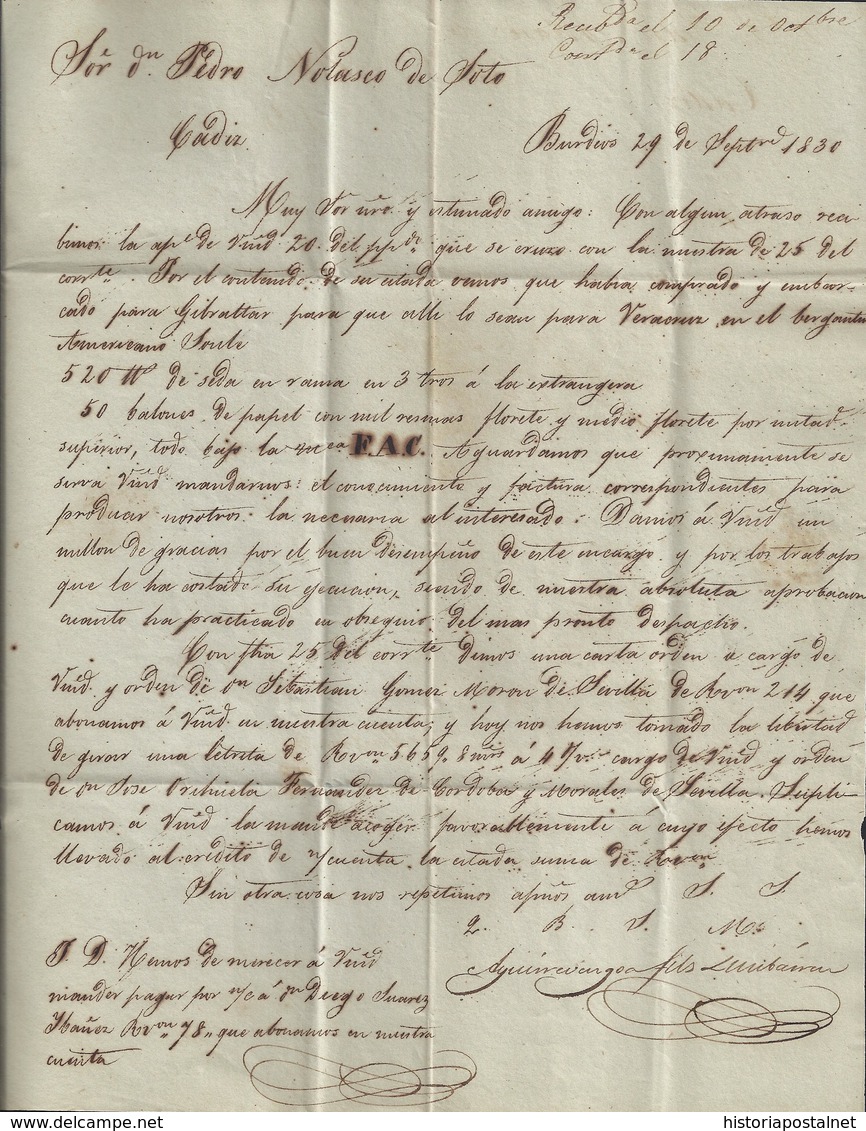 Recibda el 10 de Octbre
Contda el 18
Sor dn Pedro Nolasco de Soto
Cadiz
Burdeos 29 de Septre 1830
Muy Sor nro y estimado amigo: Con algun atraso reci
bimos la aple de Vmd 20 del ppdo que se cruzo con la nuestra de 25 del
corrte. Por el contenido de su citada vemos que habia comprado y embar-
cado para Gibraltar para que alli lo sean para Veracruz en el bergantin
Americano Soule
520 ℔s de seda en rama en 3 tros á la extrangera
50 balones de papel con mil resmas florete y medio florete por mitad
superior, todo bajo la mca F.A.C. Aguardamos que proximamente se
sirva Vmd mandarnos el conocimiento y factura correspondientes para
producir nosotros la necesaria al interesado. Damos á Vmd un
millon de gracias por el buen desempeño de este encargo y por los trabajos
que le ha costado su ejecucion, siendo de nuestra absoluta aprobacion
cuanto ha practicado en obsequio del mas pronto despacho.
Con fha 25 del corrte dimos una carta orden a cargo de
Vmd y orden de dn Sebastian Gomez Moron de Sevilla de Rvon 214 que
abonamos á Vmd en nuestra cuenta; y hoy nos hemos tomado la libertad
de girar una letrita de Rvon 5659.8 mrs á 4 d/v cargo de Vmd y orden
de dn Jose Orehuela Fernandez de Cordoba y Morales de Sevilla. Supli
camos á Vmd la mande acoger favorablemente á cuyo efecto hemos
llevado al credito de n/cuenta la citada suma de Rvon
Sin otra cosa nos repetimos apmos amos S. S.
Q. B. S. Ms
Aguirrevengoa fils Uribarren
P. D. Hemos de merecer á Vmd
mandar pagar por n/c á dn Diego Suarez
Ibañez Rvon 78 que abonamos en nuestra
cuenta
historiapostalnet